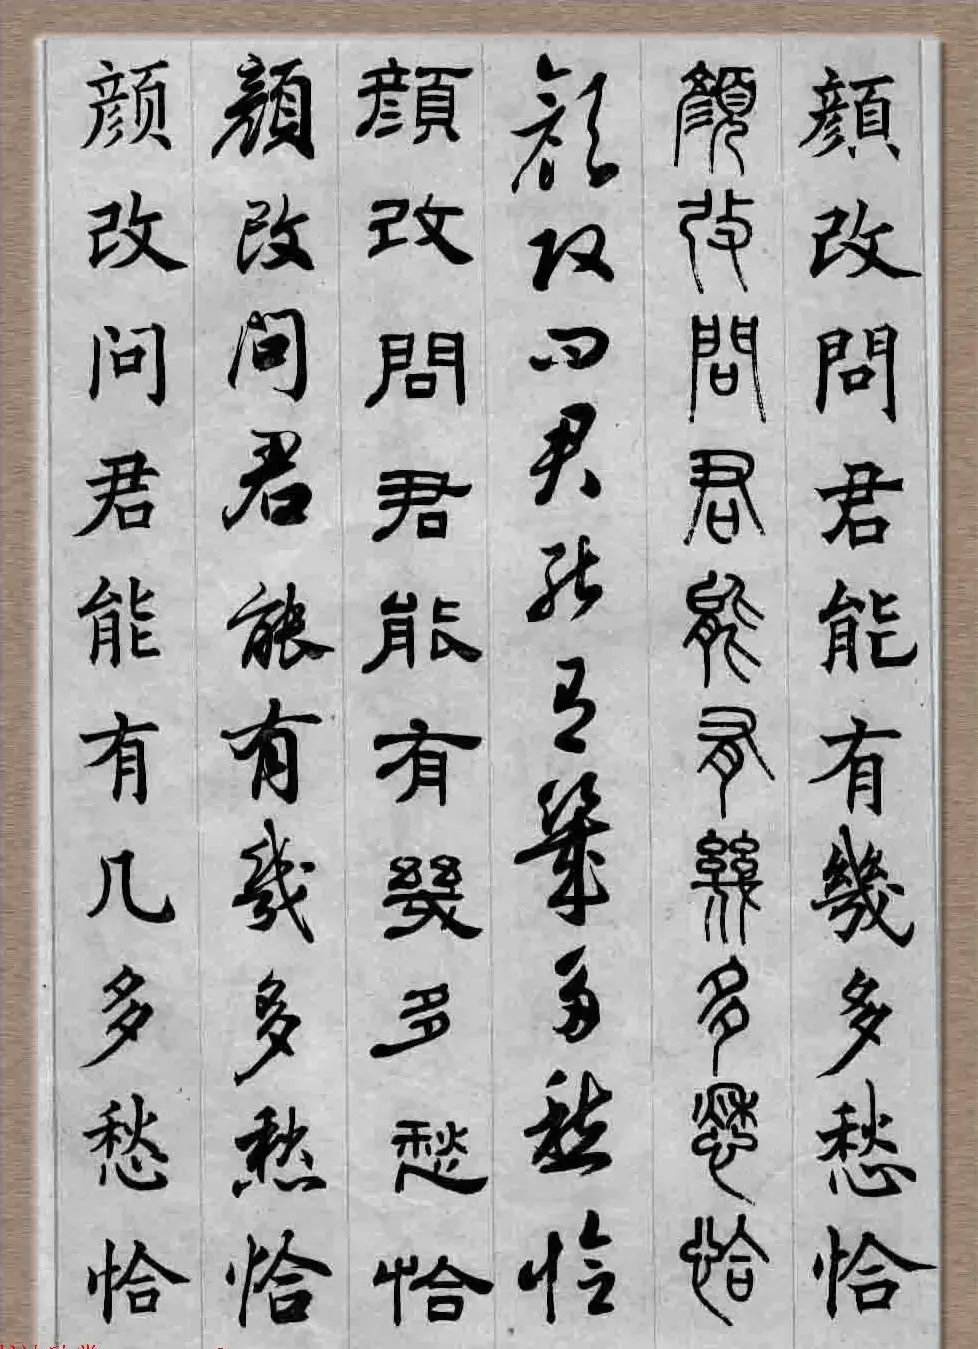 顏改問君能有幾多愁恰
顏改問君能有幾多愁恰
顏改问君能有幾多愁恰
顏改問君能有幾多愁恰
顏改问君能有幾多愁恰
颜改问君能有几多愁恰